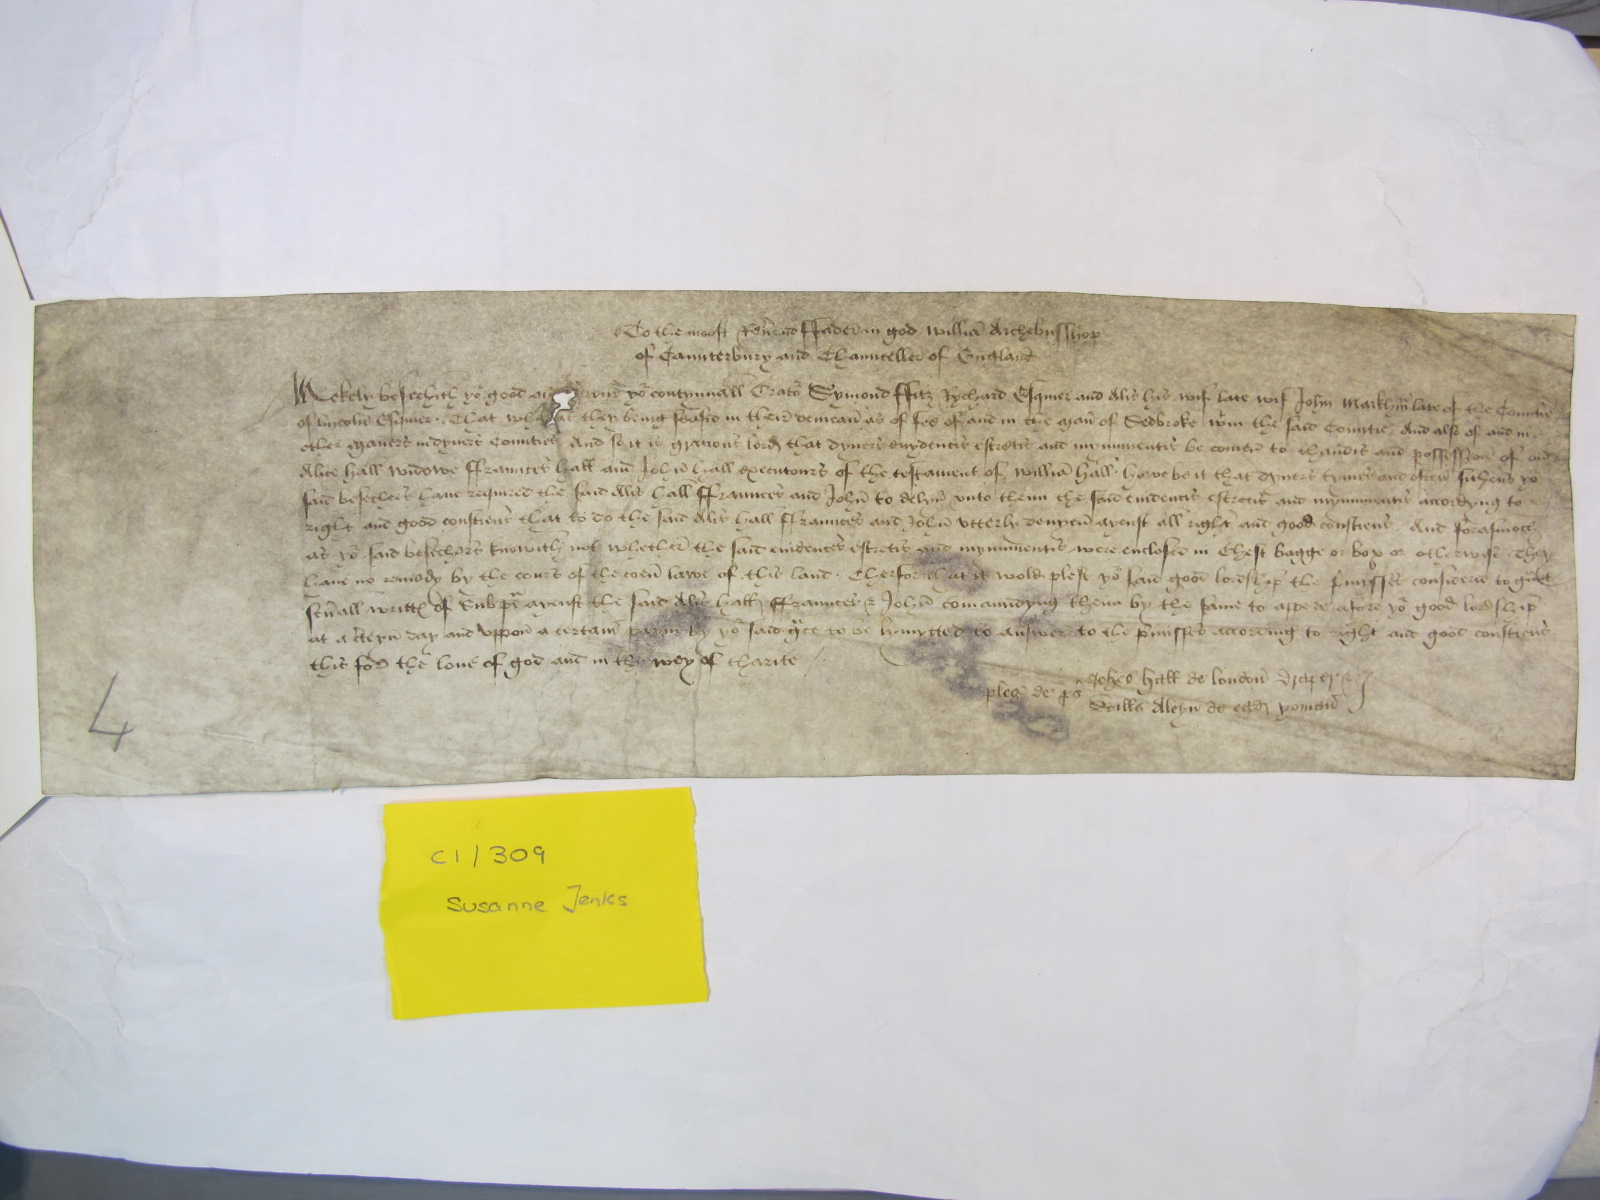 To the moost Reuend ffader in god Willia Archebusshop
of Caunterbury and Chaunceller of England
Mekely besechith yor good and yor contynuall Orators Symond ffitz Rychard Esquier and Alis his wif late wif John Marklym late of the Countie
of lincoln Esquier That wher they being seased in their demean as of fee of and in the man of Sedbroke win the said Countie And also of and in
other maners in dyuers Counties And so it is gracious lord that dyuers euydencis escretis and mynumentis be comen to thandis and possession of
Alice hall widowe ffraunces hall and John hall executours of the testament of william hall how be it that dyuers tymes and often sithens yor
said besechers haue required the said Alis hall ffraunces and John to delyu vnto them the said euidencis escretis and mynumentis accordyng to
right and good consciens that to do the said Alis hall ffraunces and John vtterly denyen ayenst all right and good consciens And forasmoch
as yor said besechers knowith not whether the said euidences escretis and mynumentis were enclosed in Chest bagge or box or otherwise They
haue no remedy by the cours of the coen lawe of this land Therfor that it wold plese yor said good lordship the pmysses considered to gunt
seuall writtz of Subpa ayenst the said Alis hall ffraunces & John comaundyng them by the same to apere afore yor good lordship
at a cteyn day and vppon a certain payn by yor said gce to be lymytted to answer to the pmisses accordyng to right and good consciens
this for the loue of god and in the wey of charite
pleg de ps Johes hall de london Draper &
Wills Aleyn de eadm yoman
4
C1/309
Susanne Jenks